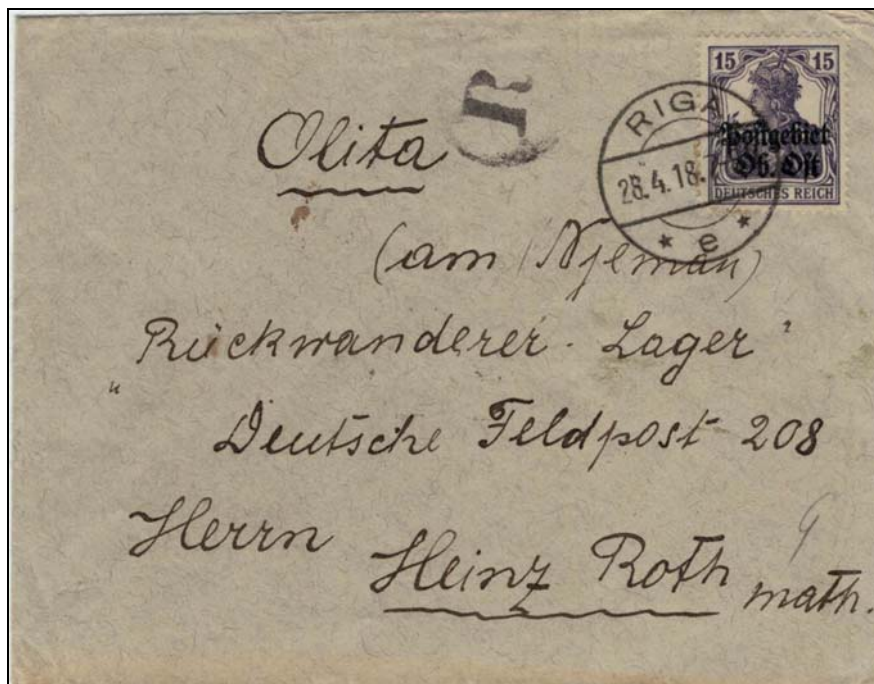 15 15
Postgebiet
Ob. Ost
DEUTSCHES REICH
RIGA
28.4.18.
* e *
R
Olita
(am Njeman)
"Rückwanderer-Lager"
Deutsche Feldpost 208
Herrn
Heinz Roth math.